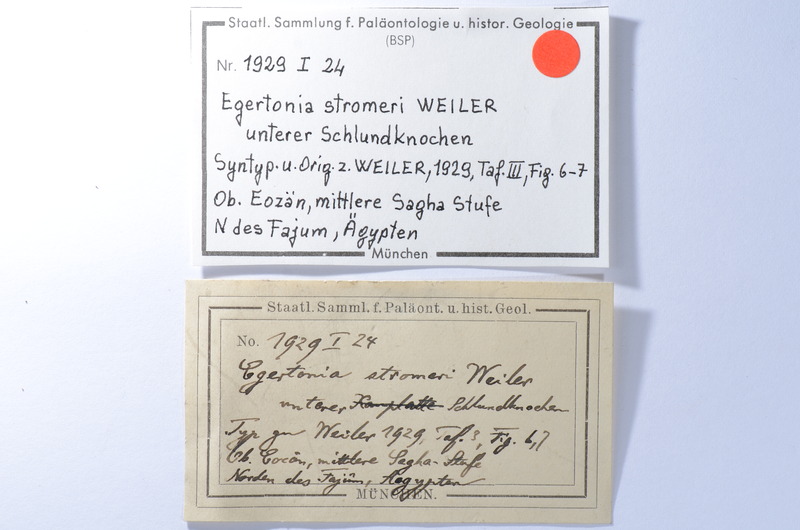 Staatl. Sammlung f. Paläontologie u. histor. Geologie
(BSP)
Nr. 1929 I 24
Egertonia stromeri WEILER
unterer Schlundknochen
Syntyp. u. Orig. z. WEILER, 1929, Taf. III, Fig. 6-7
Ob. Eozän, mittlere Sagha Stufe
N des Fajum, Ägypten
München
Staatl. Samml. f. Paläont. u. hist. Geol.
No. 1929 I 24
Egertonia stromeri Weiler
unterer Schlundknochen
Typ zu Weiler 1929, Taf. 3, Fig. 6,7
Ob. Eocän, mittlere Sagha-Stufe
Norden des Fajûm, Aegypten
MÜNCHEN.